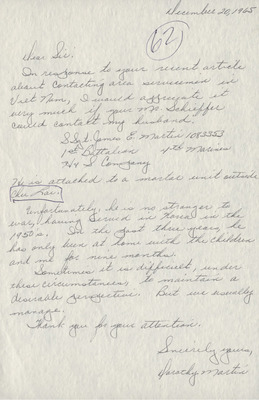 December 20, 1965
(62)
Dear Sir,
In response to your recent article
about contacting area servicemen in
Viet Nam, I would appreciate it
very much if your Mr. Schieffer
could contact my husband,
S/Sgt James E. Martin 1083353
1st Battalion 4th Marines
H & S Company
He is attached to a mortar unit outside
Chu Lai.
Unfortunately, he is no stranger to
war, having served in Korea in the
1950's. In the past three years, he
has only been at home with the children
and me for nine months.
Sometimes it is difficult, under
these circumstances, to maintain a
desirable perspective. But we usually
manage.
Thank you for your attention.
Sincerely yours,
Dorothy Martin